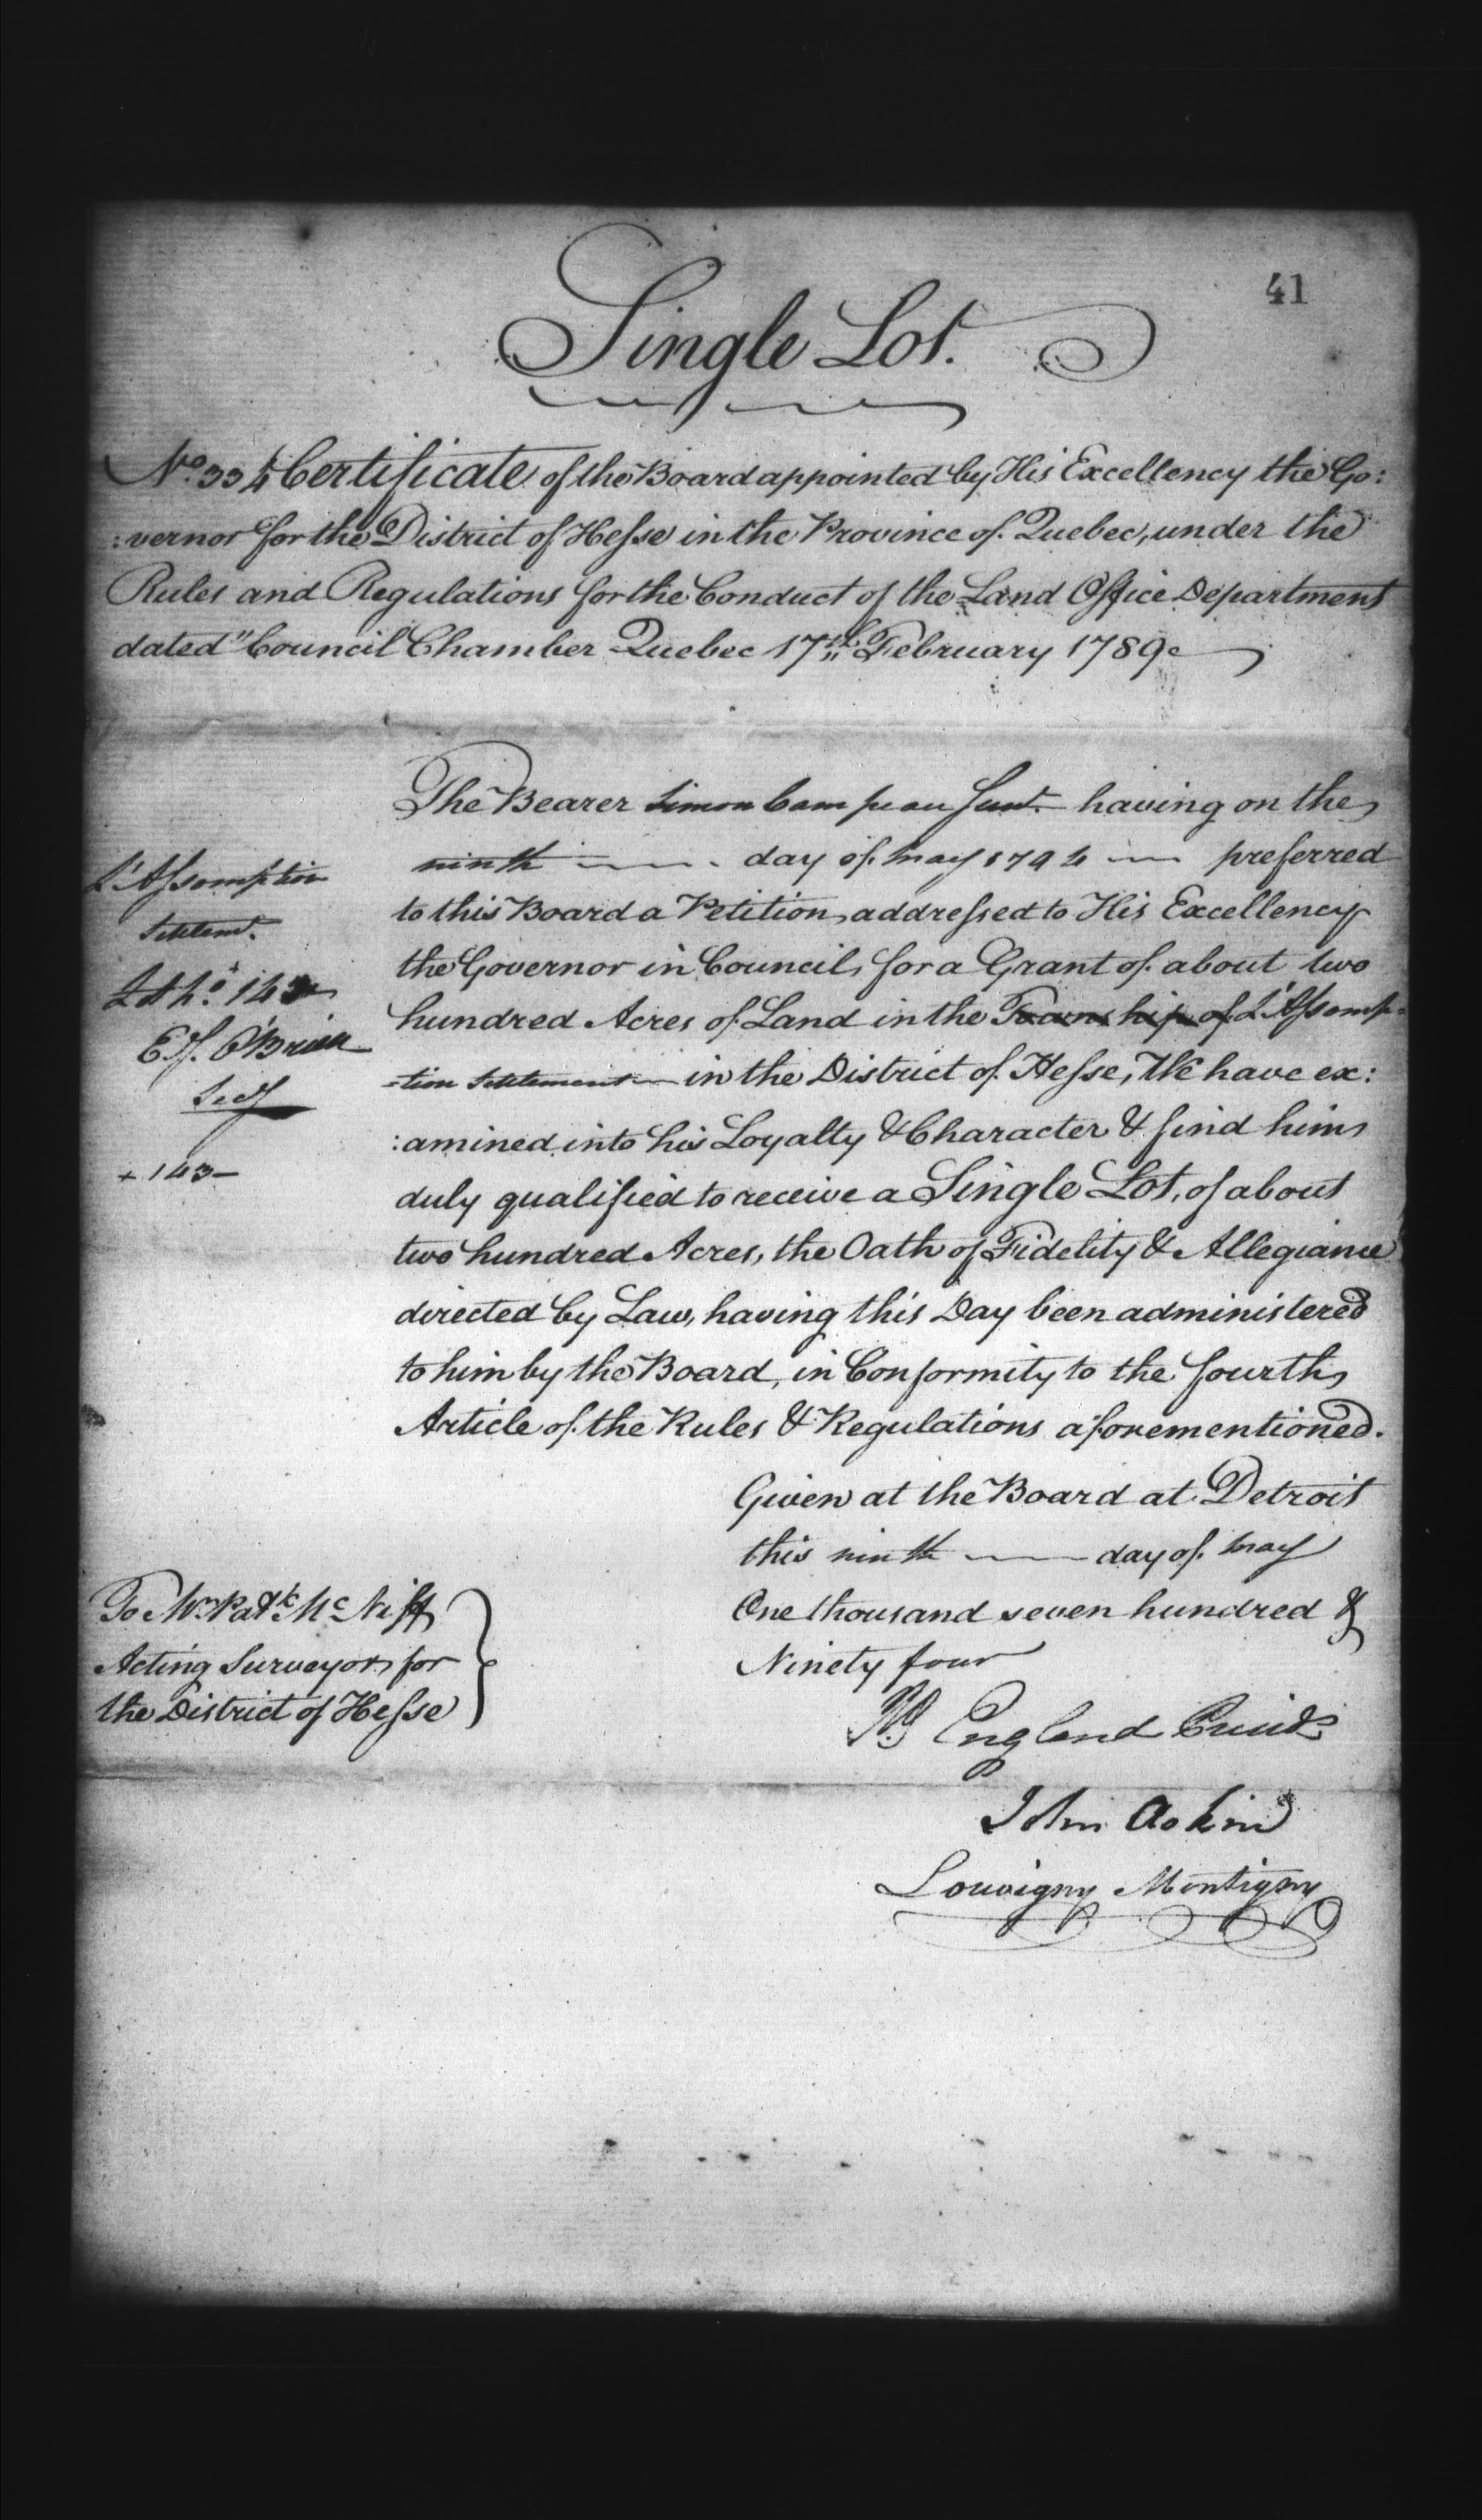 41
Single Lot.
No. 334 Certificate of the Board appointed by His Excellency the Go:
:vernor for the District of Hesse in the Province of Quebec, under the
Rules and Regulations for the Conduct of the Land Office Department
dated "Council Chamber Quebec 17th February 1789.
The Bearer Simon Campeau Junr. having on the
ninth day of may 1794 preferred
to this Board a Petition, addressed to His Excellency
the Governor in Council, for a Grant of about two
hundred Acres of Land in the Township of L'Assomp-
-tion Settlement in the District of Hesse, We have ex:
:amined into his Loyalty & Character & find him
duly qualified to receive a Single Lot, of about
two hundred Acres, the Oath of Fidelity & Allegiance
directed by Law, having this Day been administered
to him by the Board, in Conformity to the fourth
Article of the Rules & Regulations aforementioned.
L'Assomption
Settlemt.
Lot No. 143
E. O'Brien
Secy
+ 143-
Given at the Board at Detroit
this ninth day of may
One thousand seven hundred &
Ninety four
To Mr. Patk. McNiff
Acting Surveyor for
the District of Hesse
Rd England
John Askin
Louvigny Montigny